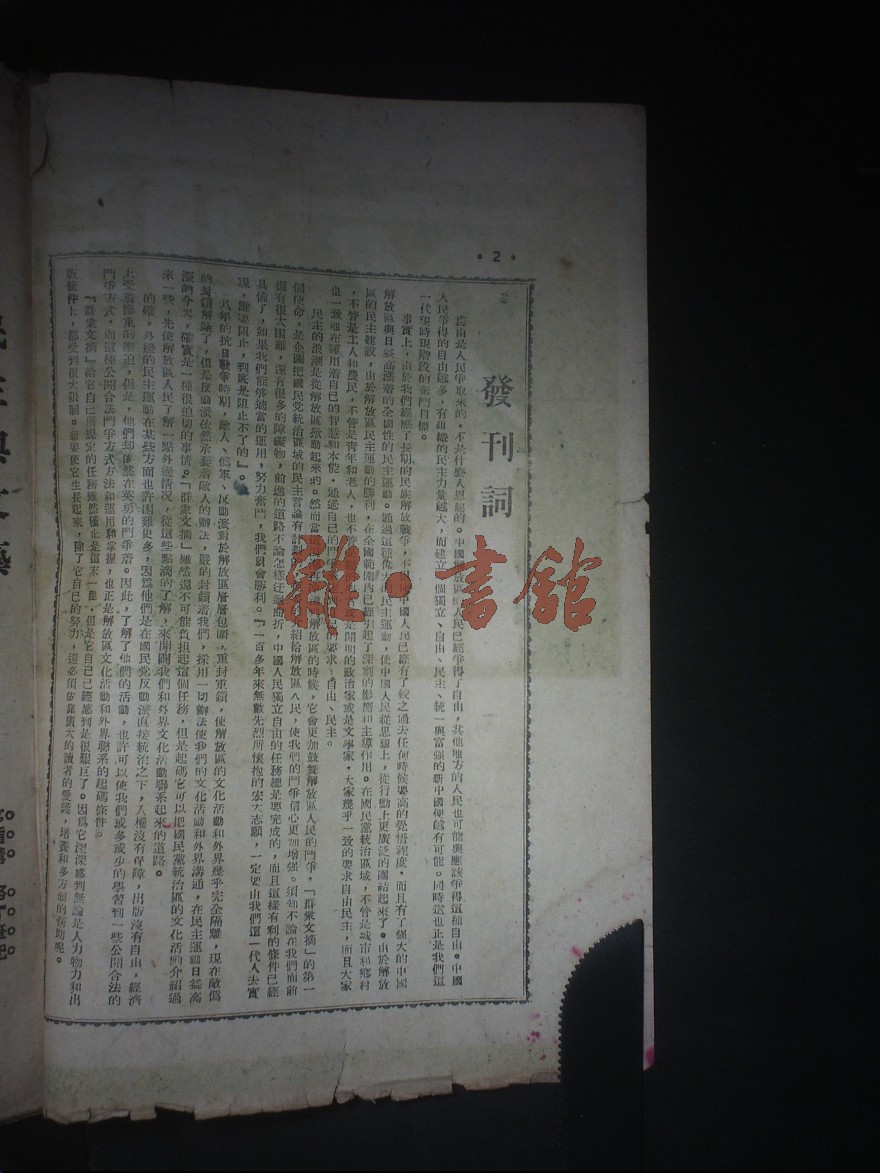 ·2·
發刊詞
自由是人民爭取來的，不是什麼人恩賜的。中國解放區的人民已經爭得了自由，其他地方的人民也可能與應該爭得這種自由。中國
人民爭得的自由越多，有組織的民主力量越大，而建立一個獨立、自由、民主、統一與富強的新中國便越有可能。同時這也正是我們這
一代現時現階段的奮鬥目標。
事實上，由於我們經歷了長期的民族解放戰爭，不 中國人民已經有了較之過去任何時候要高的覺悟程度，而且有了強大的中國
解放區與日益高漲着的全國性的民主運動。通過這種偉大的民主運動，使中國人民從思想上，從行動上更廣泛的團結起來了。由於解放
區的民主建設，由於解放區民主運動的勝利，在全國範圍內已經引起了深刻的影響和主導作用。在國民黨統治區域，不管是城市和鄉村
，不管是工人和農民，不管是青年和老人，也不管 是開明的政治家或是文學家，大家幾乎一致的要求自由民主，而且大家
也一致地在運用着自己的智慧和本能，通過自己的鬥 的要求，自由、民主。
民主的浪潮是從解放區掀動起來的。然而當這 解放區的時候，它會更加鼓舞解放區人民的鬥爭，『群衆文摘』的第一
個使命，是企圖把國民党統治區域的民主言論有計劃 紹給解放區人民，使我們的鬥爭信心更加增強。須知不論在我們面前
還有很大困難，還有很多的障礙物，前進的道路不論怎樣迂迴曲折，中國人民獨立自由的任務總是要完成的，而且這樣有利的條件已經
具備了，如果我們能够適當的運用，努力奮鬥，我們就會勝利。『一百多年來無數先烈所懷抱的宏大志願，一定要由我們這一代人去實
現，誰要阻止，到底是阻止不了的』。
八年的抗日戰爭時期，敵人、僞軍、反動派對於解放區層層包圍，重封重鎖，使解放區的文化活動和外界幾乎完全隔離，現在敵僞
的封鎖解除了，但是反動派依然承接着敵人的辦法，嚴的封鎖着我們，採用一切辦法使我們的文化活動和外界溝通，在民主運動日益高
漲的今天，確實是一種很迫切的事情。『群衆文摘』雖然還不可能負担起這個任務，但是起碼它可以把國民黨統治區的文化活動介紹過
來一些，先使解放區人民了解一點外邊情況，從這些點滴的了解，來開闢我們和外界文化活動聯系起來的道路。
的確，外邊的民主運動在某些方面也許困難更多，因爲他們是在國民党反動派直接統治之下，人權沒有保障，出版沒有自由，經濟
上受着慘重的壓迫，但是，他們却依然在英勇的鬥爭着。因此，了解了他們的活動，也許可以使我們或多或少的學習到一些公開合法的
鬥爭方式，而這種公開合法鬥爭方式方法和運用和掌握，也正是解放區文化活動和外界聯系的起碼條件。
『群衆文摘』給它自己所規定的任務雖然僅止是這末一點，但是它自己已經感到是很艱巨了。因爲它深深感到無論是人力物力和出
版條件上，都受到很大限制。想要使它生長起來，除了它自己的努力，還必須依靠廣大的讀者的愛護，培養和多方面的帮助呢。
雜·書館